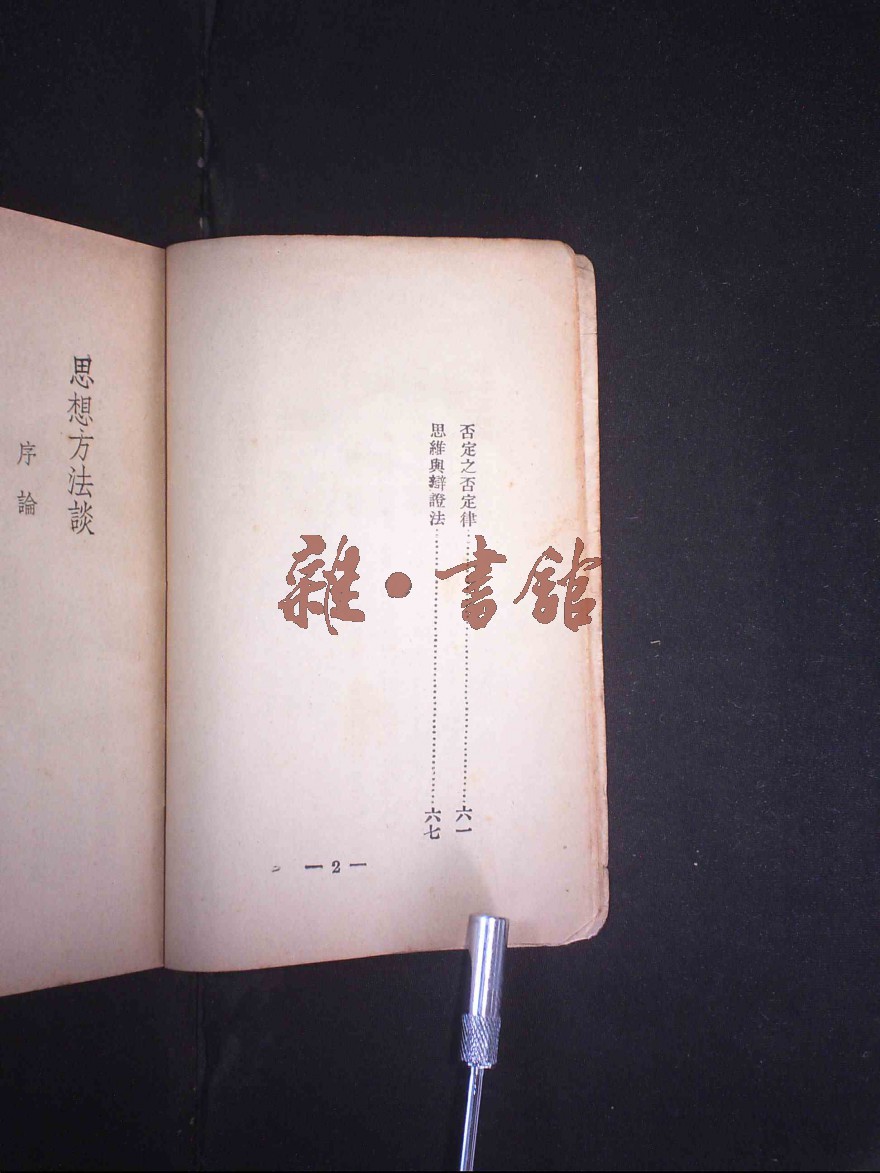 否定之否定律⋯⋯⋯⋯⋯⋯⋯⋯六一
思維與辯證法⋯⋯⋯⋯⋯⋯⋯⋯六七
— 2 —
思想方法談
序論
雜·書館